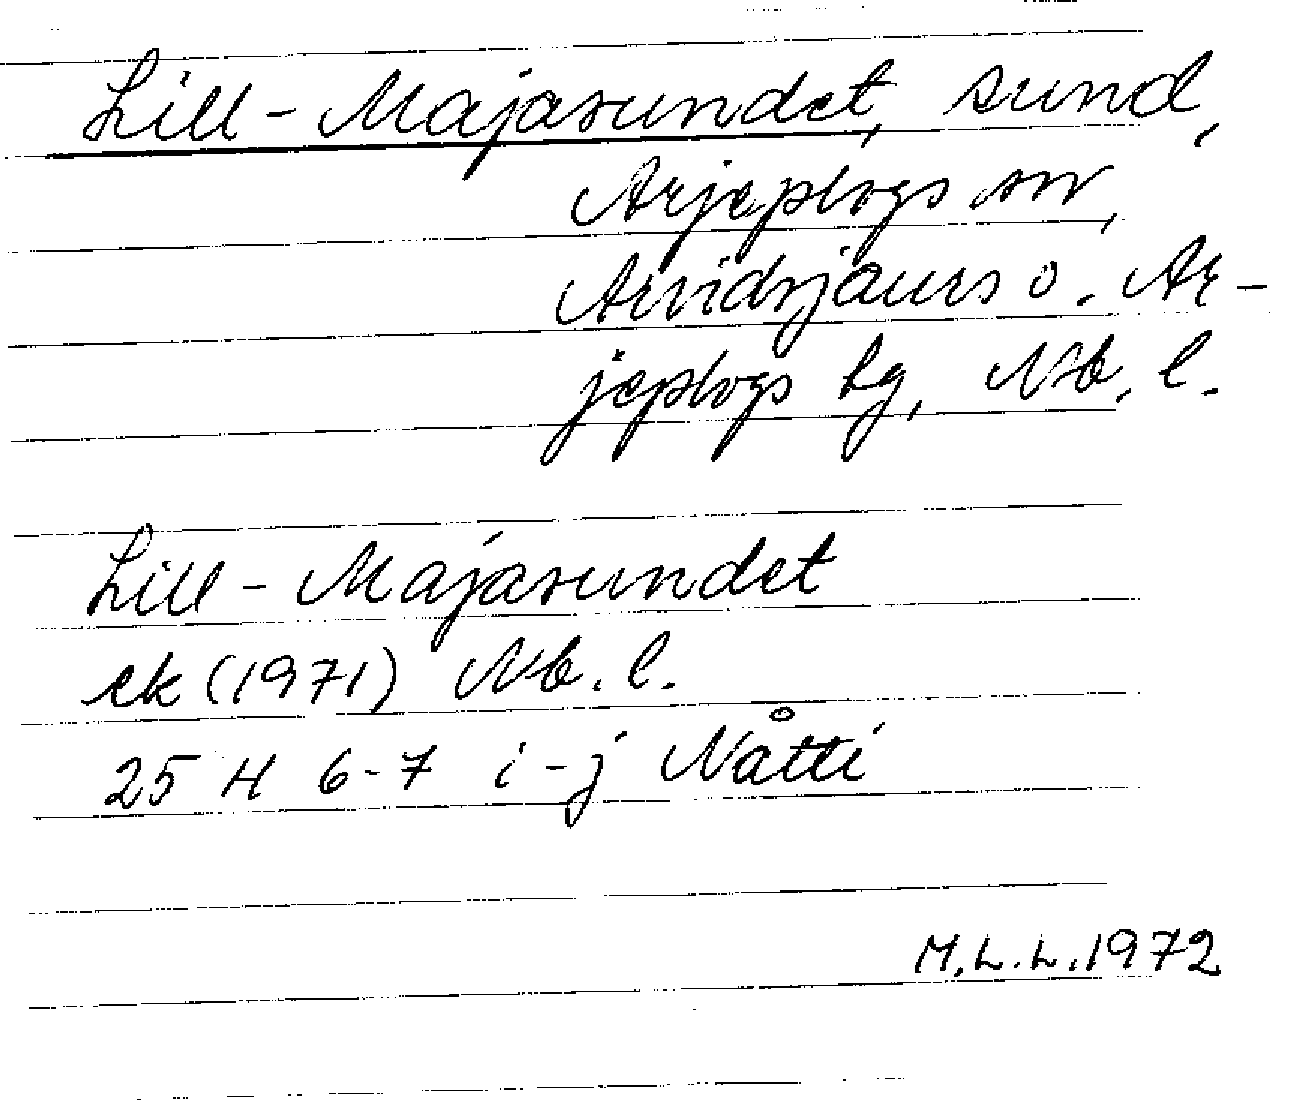 Lill-Majasundet, sund,
Arjeplogs sn,
Arvidsjaurs o. Ar-
jeplogs tg, Nb. l.
Lill-Majasundet
ek (1971) Nb. l.
25 H 6-7 i-j Nåtti
M.L.L. 1972